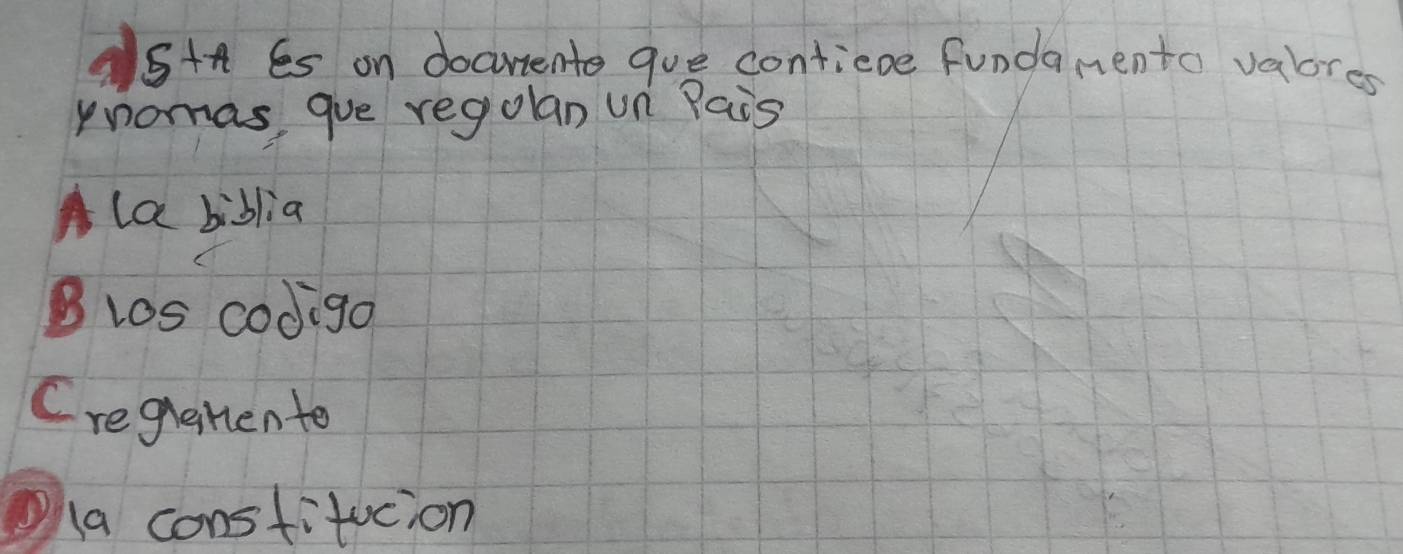 Esta Es on documento que contiene fundamento valores
y nomas, que regulan un Pais
A la biblia
B los codigo
C reglamento
D la constitucion